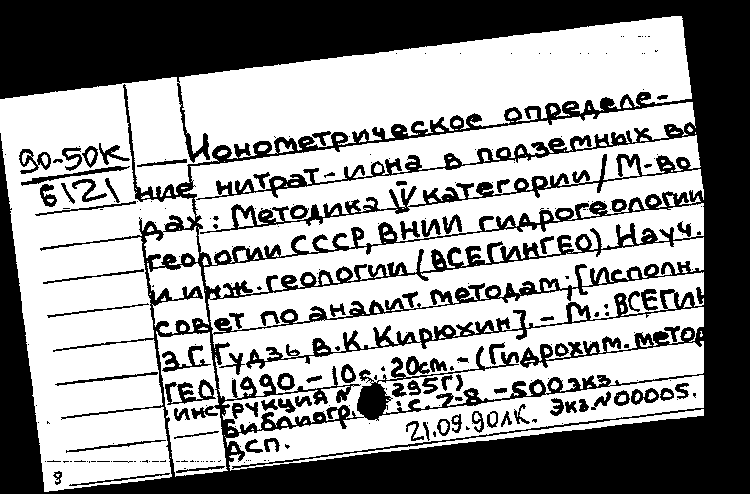 Ионометрическое определе-
90-50К
6121
ние нитрат-иона в подземных во
дах: Методика IV категории / М-во
геологии СССР, ВНИИ гидрогеологии
и инж. геологии (ВСЕГИНГЕО). Науч.
совет по аналит. методам; [Исполн.
З.Г. Гудзь, В.К. Кирюхин]. - М.: ВСЕГИН
ГЕО, 1990. - 10 с.; 20см. - (Гидрохим. метод
инструкция N 295Г)
Библиогр.: с. 7-8. - 500 экз.
ДСП. 21.09.90ЛК. Экз.N00005.
8